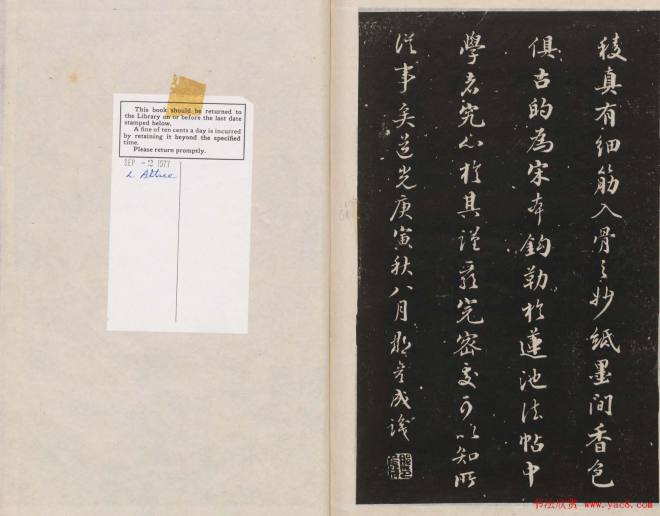 This book should be returned to
the Library on or before the last date
stamped below.
A fine of ten cents a day is incurred
by retaining it beyond the specified
time.
Please return promptly.
SEP -2 1977
L Attree
稜真有細筋入骨之妙紙墨間香色
俱古的為宋本鈎勒於蓮池法帖中
學者究心於其謹嚴完密處可以知所
從事矣道光庚寅秋八月那彥成識
书法欣赏 www.yac8.com